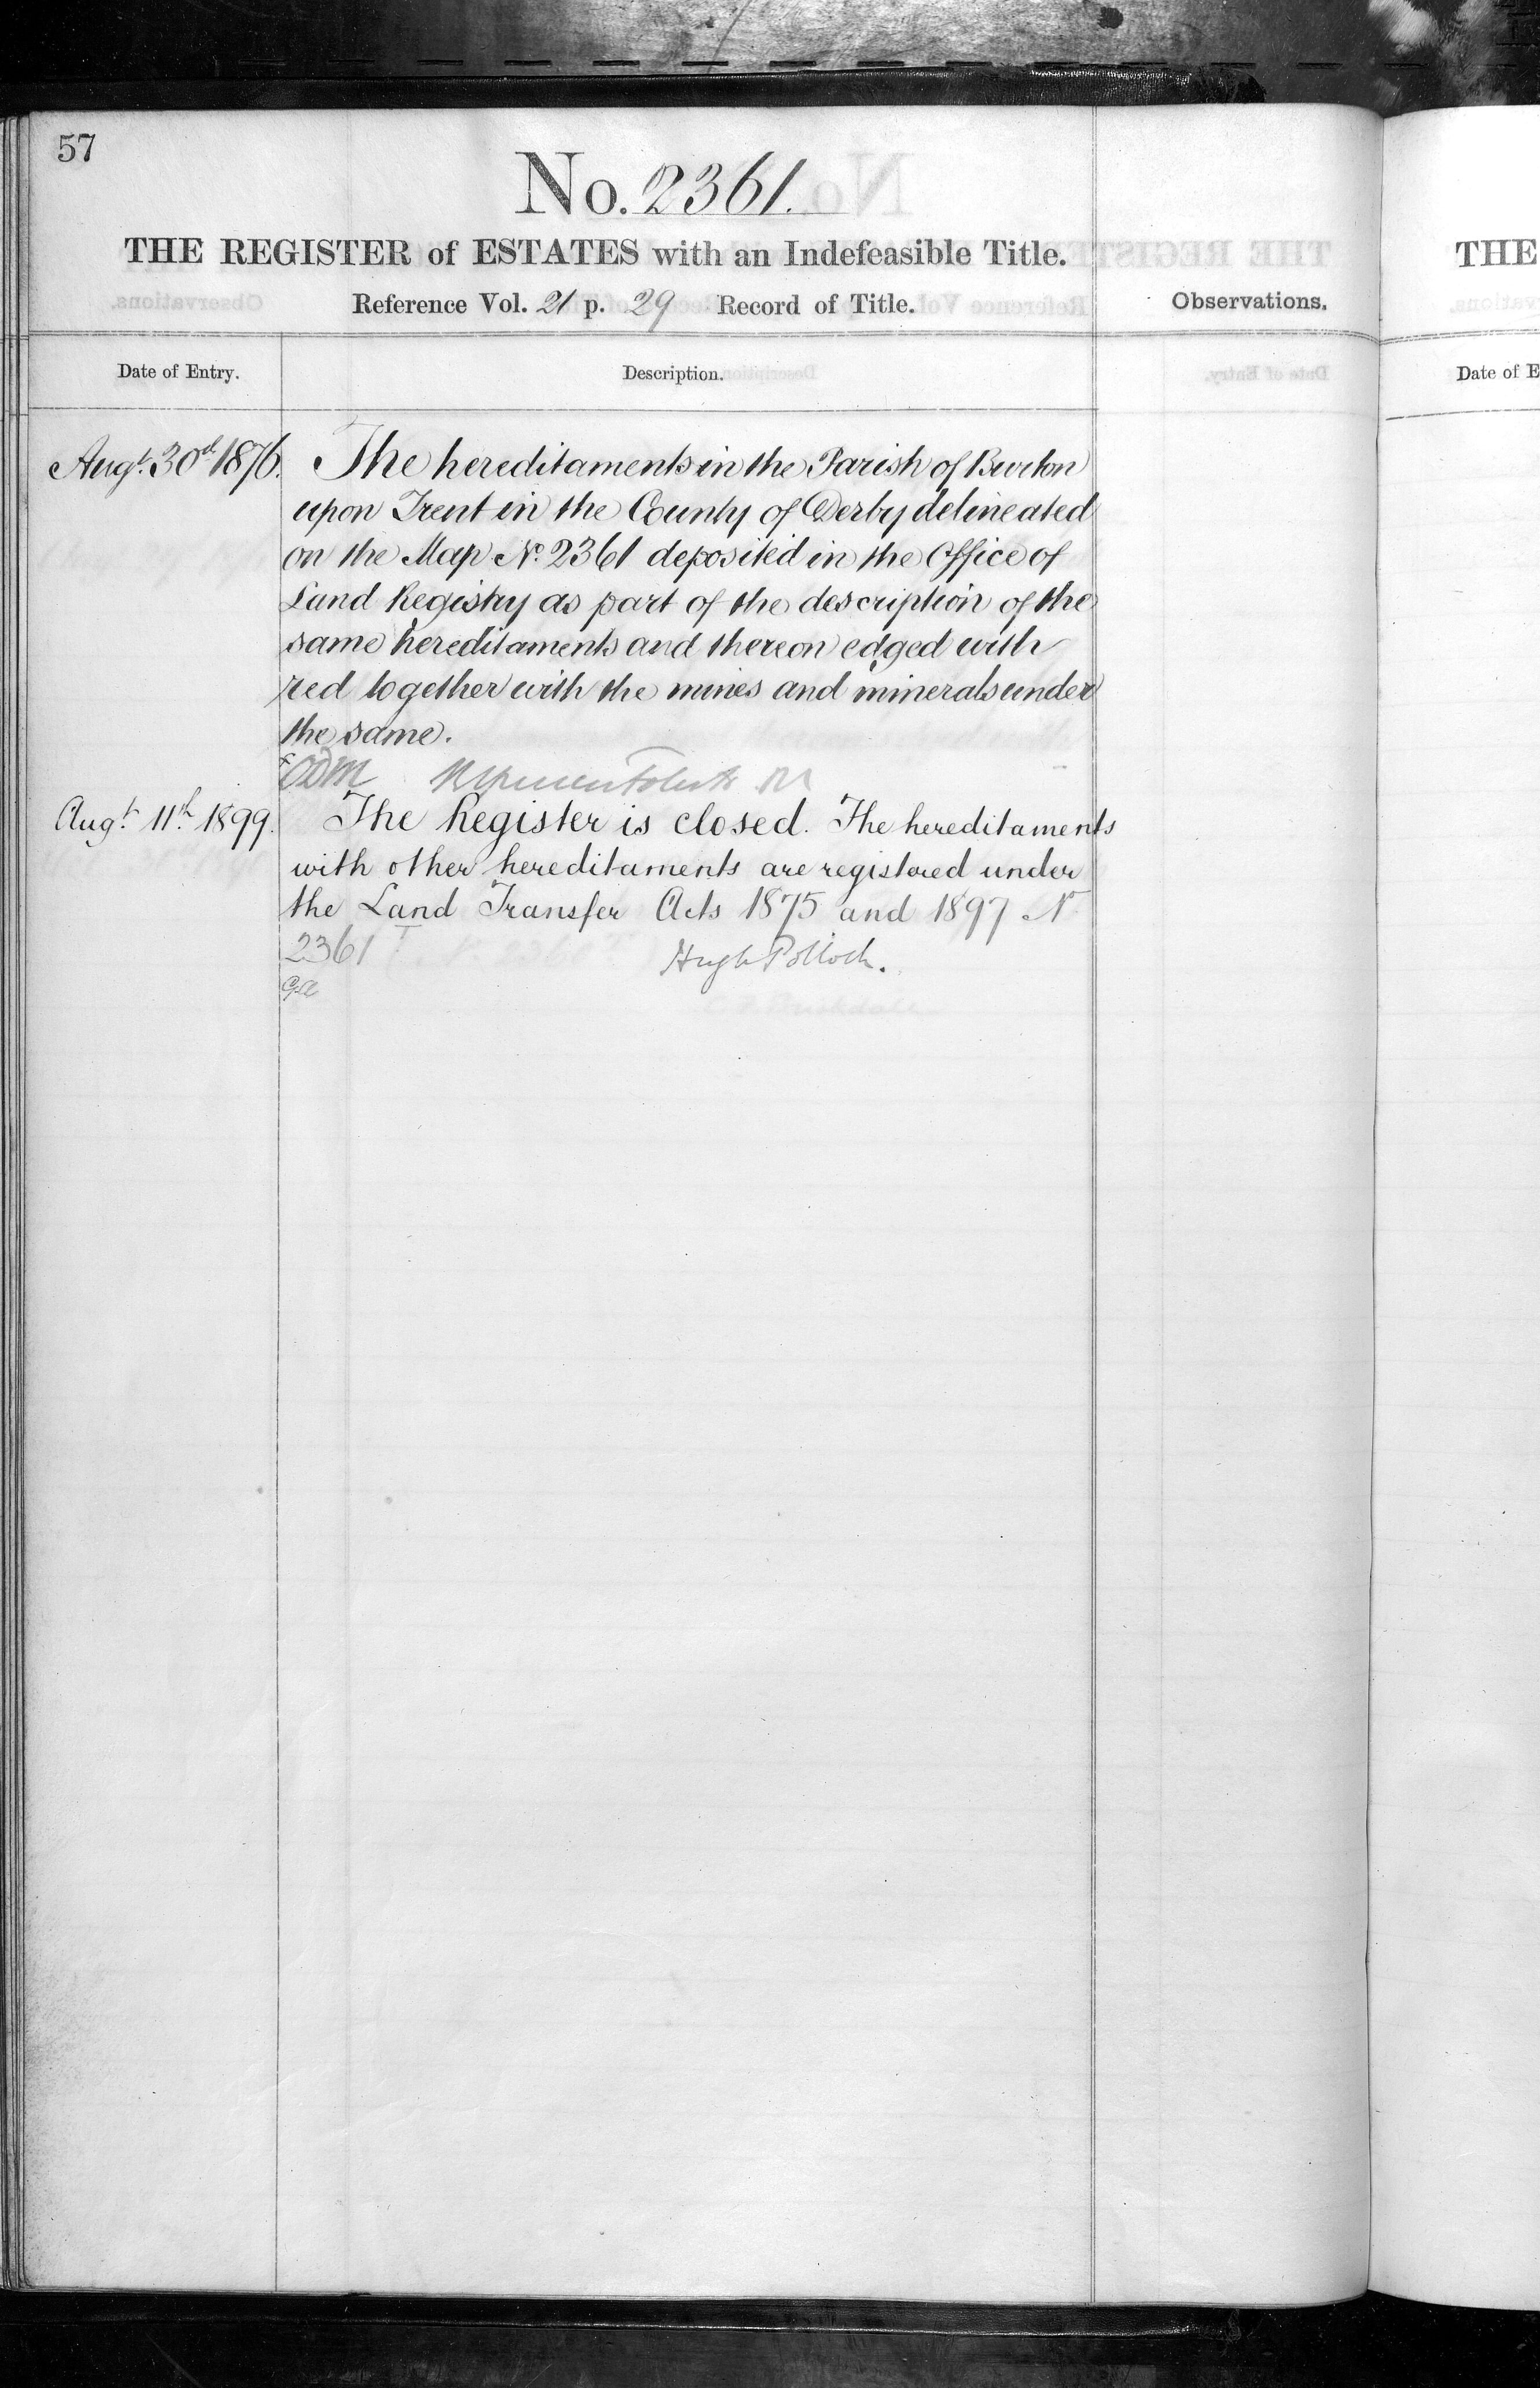 57
No. 2361.
THE REGISTER of ESTATES with an Indefeasible Title.
Reference Vol. 21 p. 29 Record of Title.
Observations.
Date of Entry.
Description.
Augt. 30th 1876. The hereditaments in the Parish of Burton
upon Trent in the County of Derby delineated
on the Map No. 2361 deposited in the Office of
Land Registry as part of the description of the
same hereditaments and thereon edged with
red together with the mines and minerals under
the same.
Augt. 11th 1899. The Register is closed. The hereditaments
with other hereditaments are registered under
the Land Transfer Acts 1875 and 1897 No
2361
Hugh Pollock.
THE
Date of E